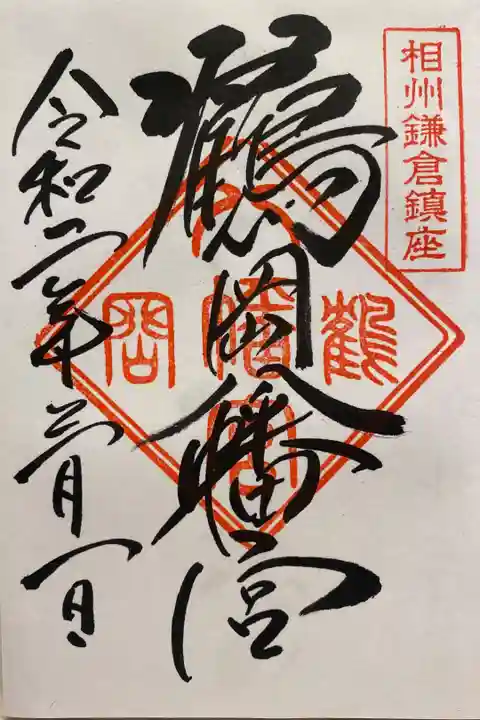 相州鎌倉鎮座
鶴岡八幡宮
令和二年 月一日
八
鶴 幡 岡
宮